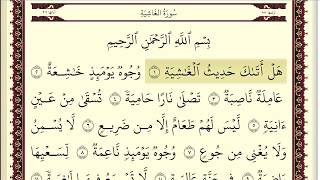 سُورَةُ الغَاشِيَةِ
بِسْمِ اللَّهِ الرَّحْمَٰنِ الرَّحِيمِ
هَلْ أَتَىٰكَ حَدِيثُ الْغَٰشِيَةِ ١ وُجُوهٌ يَوْمَئِذٍ خَٰشِعَةٌ ٢
عَامِلَةٌ نَّاصِبَةٌ ٣ تَصْلَىٰ نَارًا حَامِيَةً ٤ تُسْقَىٰ مِنْ عَيْنٍ
ءَانِيَةٍ ٥ لَّيْسَ لَهُمْ طَعَامٌ إِلَّا مِن ضَرِيعٍ ٦ لَّا يُسْمِنُ
وَلَا يُغْنِى مِن جُوعٍ ٧ وُجُوهٌ يَوْمَئِذٍ نَّاعِمَةٌ ٨ لِّسَعْيِهَا